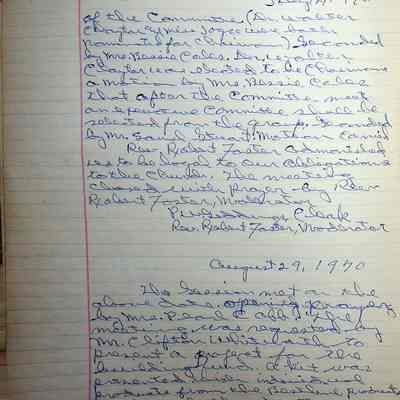 of the Committee, (Dr. Walter
Chayter & Miss Joyce were both
for Chairman) Seconded
by Mrs. Bessie Cales. Dr. Walter
Chayter was elected to be Chairman
a motion by Mrs. Bessie Cales
that after the Committee meets
an expensive Committee shall be
selected from the group, Seconded
by Mr. Saul Stuart. Motion Carried
Rev. Robert Foster admonished
us to be loyal to our obligations
to the Church. The meeting
closed with prayer by Rev.
Robert Foster, Moderator
Clerk
Rev. Robert Foster, Moderator
August 29, 1970
The Session met on the
above date, opening prayer
by Mrs. Pearl Cobb. The
meeting was requested by
Mr. Clifton Whitworth to
present a project for the
building fund. A kit was
presented with individual
products from the Bestline products